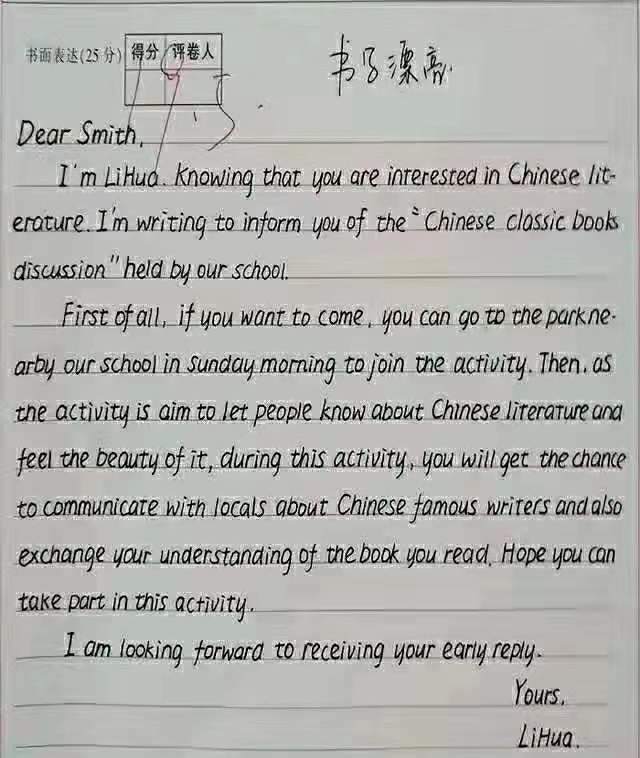 书面表达(25分) 得分 评卷人
书写漂亮
Dear Smith,
I'm LiHua. Knowing that you are interested in Chinese lit-
erature. I'm writing to inform you of the "Chinese classic books
discussion" held by our school.
First of all, if you want to come, you can go to the park ne-
arby our school in Sunday morning to join the activity. Then, as
the activity is aim to let people know about Chinese literature and
feel the beauty of it, during this activity, you will get the chance
to communicate with locals about Chinese famous writers and also
exchange your understanding of the book you read. Hope you can
take part in this activity.
I am looking forward to receiving your early reply.
Yours,
LiHua.